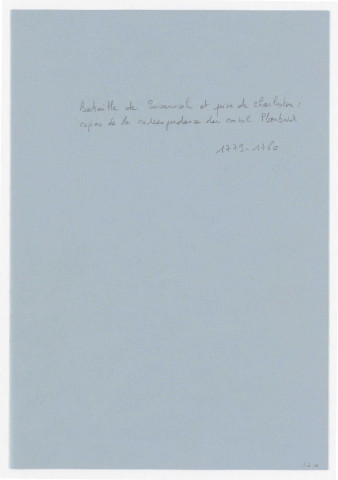 Bataille de Savannah et prise de Charleston :
copies de la correspondance du consul Plombard
1779-1780